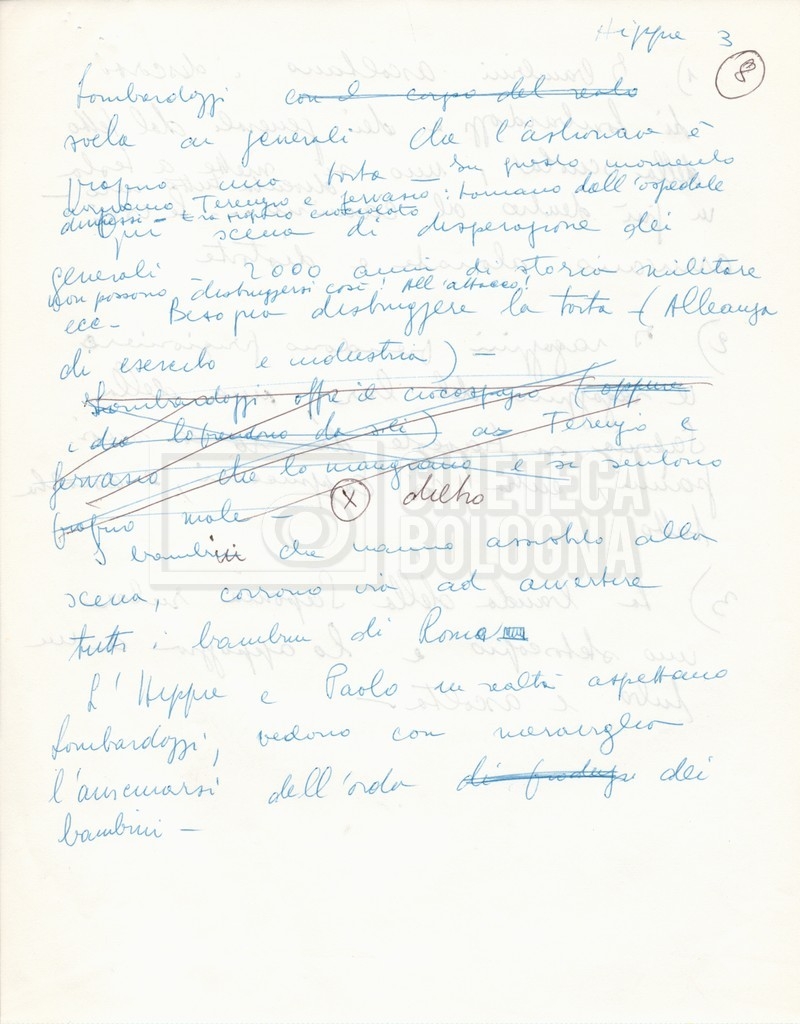 Hippie 3
8
Lombardozzi con il corpo del reato
svela ai generali che l'astronave è
proprio una torta – In questo momento
arrivano Terenzio e Gervasio: tornano dall'ospedale
dimessi – Era meglio cioccolato
Qui scena di disperazione dei
generali – 2000 anni di storia militare
non possono distruggersi così! All'attacco!
ecc – Bisogna distruggere la torta – (Alleanza
di esercito e industria) –
Lombardozzi offre il ciocospazio (oppure
i due lo prendono da soli) a Terenzio e
Gervasio che lo mangiano e si sentono
proprio male –
X dietro
I bambini che hanno assistito alla
scena, corrono via ad avvertire
tutti i bambini di Roma
L'Hippie e Paolo in realtà aspettano
Lombardozzi, vedono con meraviglia
l'avvicinarsi dell'orda dei
bambini –
CINETECA
BOLOGNA